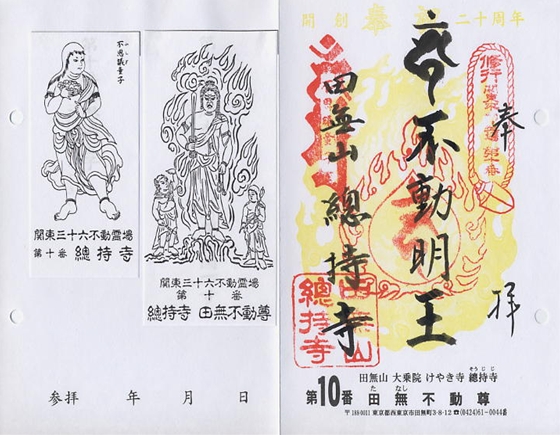 不思議童子
関東三十六不動霊場
第十番 總持寺
関東三十六不動霊場
第十番
總持寺 田無不動尊
参拝 年 月 日
開創 二十周年
奉拝
不動明王
田無山總持寺
田無山
總持寺
田無山 大乗院 けやき寺 總持寺
そうじじ
第10番 田無不動尊
た なし
〒188-0011 東京都西東京市田無町3-8-12 ☎(0424)61-0044